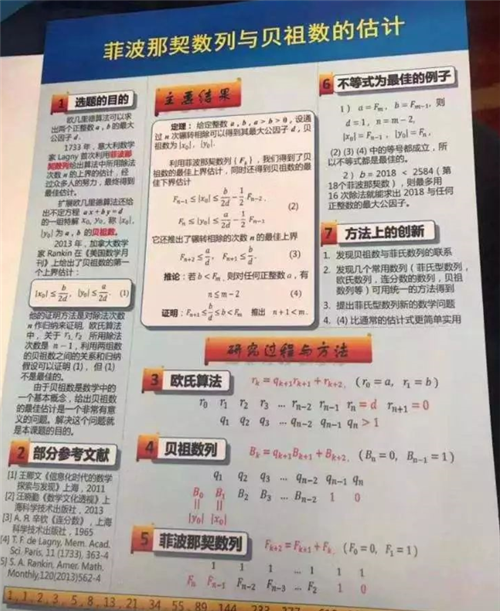 菲波那契数列与贝祖数的估计
1 选题的目的
欧几里德算法可以求
出两个正整数 a, b 的最大
公因子 d。
1733 年，意大利数学
家 Lagny 首次利用菲波那
契数列给出算法中所用除法
次数 n 的上界的估计，经
过众多人的努力，最终得到
最佳估计。
扩展欧几里德算法还给
出不定方程 ax+by=d
的一组特解 x₀, y₀, 称 |x₀|,
|y₀| 为 a, b 的贝祖数。
2013 年，加拿大数学
家 Rankin 在《美国数学月
刊》上给出了贝祖数的第一
个上界估计：
|x₀| ≤ b/2d, |y₀| ≤ a/2d (1)
他的证明方法是对除法次数
n 作归纳来证明，欧氏算法
中，关于 r₁, r₂ 所用除法
次数是 n − 1，利用两组数
的贝祖数之间的关系和归纳
假设可以证明 (1)，但 (1)
不是最佳的。
由于贝祖数是数学中的
一个基本概念，给出贝祖数
的最佳估计是一个非常有意
义的问题。解决这个问题就
是本课题的目的。
2 部分参考文献
[1] 王卿文《信息化时代的数学
探索与发现》上海，2011
[2] 汪晓勤《数学文化透视》上
海科学技术出版社，2013
[3] А. Я. 辛钦《连分数》，上海
科学技术出版社，1965
[4] T. F. de Lagny, Mem. Acad.
Sci. Paris, 11 (1733), 363-4
[5] S. A. Rankin, Amer. Math.
Monthly,120(2013)562-4
主要结果
定理：给定整数 a, b, a > b > 0，设通
过 n 次辗转相除可以得到其最大公因子 d，贝
祖数为 |x₀|, |y₀|。
利用菲波那契数列 {Fₖ}，我们得到了贝
祖数的最佳上界估计，同时还得到贝祖数的最
佳下界估计
Fₙ₋₁ ≤ |x₀| ≤ b/2d − 1/2 Fₙ₋₂,
(2)
Fₙ ≤ |y₀| ≤ a/2d − 1/2 Fₙ₋₁.
它还推出了辗转相除的次数 n 的最佳上界
Fₙ₊₂ ≤ a/d, Fₙ₊₁ ≤ b/d. (3)
推论：若 b < Fₘ, 则对任何正整数 a，有
n ≤ m − 2 (4)
证明：Fₙ₊₁ ≤ b/d ≤ b < Fₘ 推出 n + 1 < m.
研究过程与方法
3 欧氏算法 rₖ = qₖ₊₁rₖ₊₁ + rₖ₊₂, (r₀ = a, r₁ = b)
r₀ r₁ r₂ r₃ … rₙ₋₂ rₙ₋₁ rₙ = d rₙ₊₁ = 0
q₁ q₂ q₃ … qₙ₋₂ qₙ₋₁ qₙ > 1
4 贝祖数列 Bₖ = qₖ₊₁Bₖ₊₁ + Bₖ₊₂, (Bₙ = 0, Bₙ₋₁ = 1)
q₁ q₂ q₃ … qₙ₋₂ qₙ₋₁ qₙ
B₀ B₁ B₂ B₃ … Bₙ₋₂ 1 0
|| ||
|y₀| |x₀|
5 菲波那契数列 Fₖ₊₂ = Fₖ₊₁ + Fₖ, (F₀ = 0, F₁ = 1)
1 1 1 … 1 1 1
Fₙ Fₙ₋₁ Fₙ₋₂ Fₙ₋₃ … F₂ 1 0
6 不等式为最佳的例子
1） a = Fₘ, b = Fₘ₋₁, 则
d = 1, n = m − 2,
|x₀| = Fₙ₋₁, |y₀| = Fₙ.
(2) (3) (4) 中的等号都成立，所
以不等式都是最佳的。
2）b = 2018 < 2584 ( 第
18个菲波那契数 )，则最多用
16 次除法就能求出 2018 与任何
正整数的最大公因子。
7 方法上的创新
1. 发现贝祖数与菲氏数列的联系
2. 发现几个常用数列 ( 菲氏型数列，
欧氏数列，连分数的数列，贝祖
数列等 ) 可用统一的方法得到
3. 提出菲氏型数列新的数学问题
4. (4) 比通常的估计式更简单实用
1, 1, 2, 3, 5, 8, 13, 21, 34, 55, 89, 144, 233